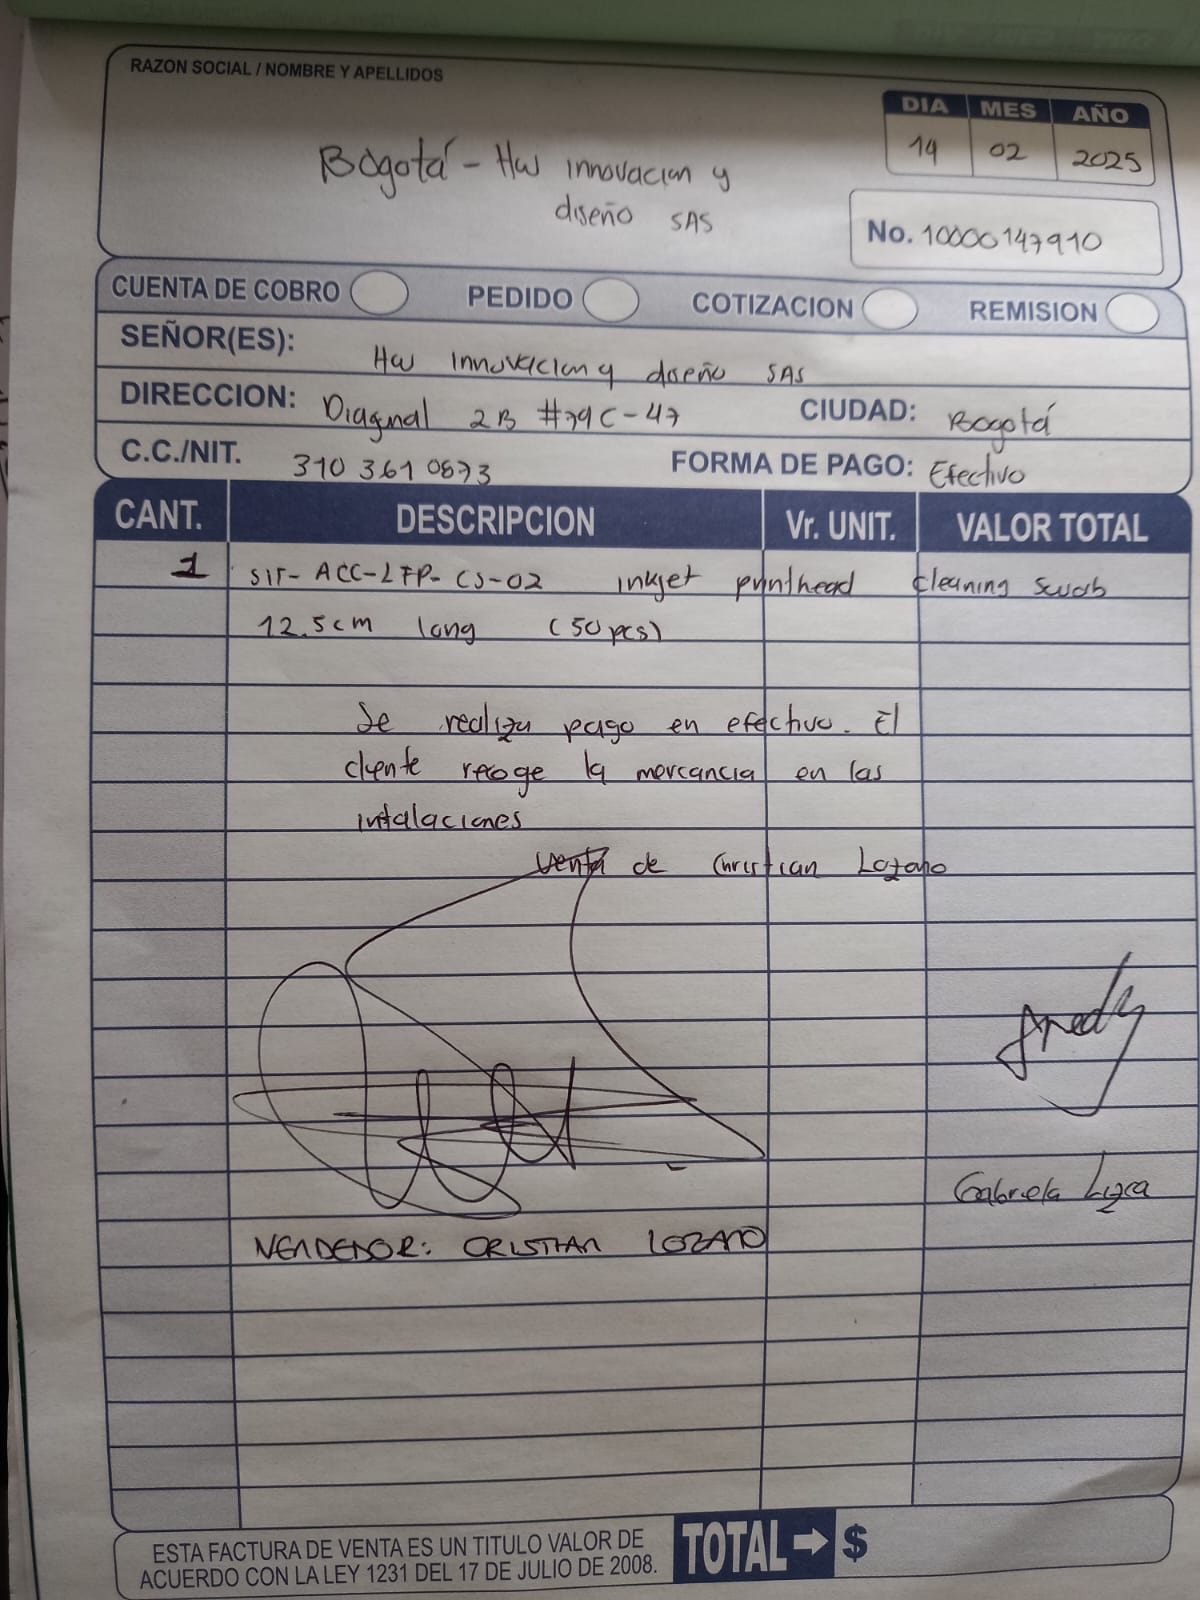 RAZON SOCIAL / NOMBRE Y APELLIDOS
DIA MES AÑO
14 02 2025
Bogotá - HW innovacion y
diseño SAS
No. 10000147910
CUENTA DE COBRO PEDIDO COTIZACION REMISION
SEÑOR(ES): HW innovacion y diseño SAS
DIRECCION: Diagnal 2B #79C-47 CIUDAD: Bogotá
C.C./NIT. 310 361 0873 FORMA DE PAGO: Efectivo
CANT. DESCRIPCION Vr. UNIT. VALOR TOTAL
1 SIT-ACC-LFP-CS-02 inkjet printhead cleaning swab
12.5cm long (50pcs)
Se realiza pago en efectivo. El
cliente recoge la mercancia en las
intalaciones
venta de Christian Lozano
Fredy
Gabriela
VENDEDOR: CRISTIAN LOZANO
ESTA FACTURA DE VENTA ES UN TITULO VALOR DE
ACUERDO CON LA LEY 1231 DEL 17 DE JULIO DE 2008.
TOTAL → $